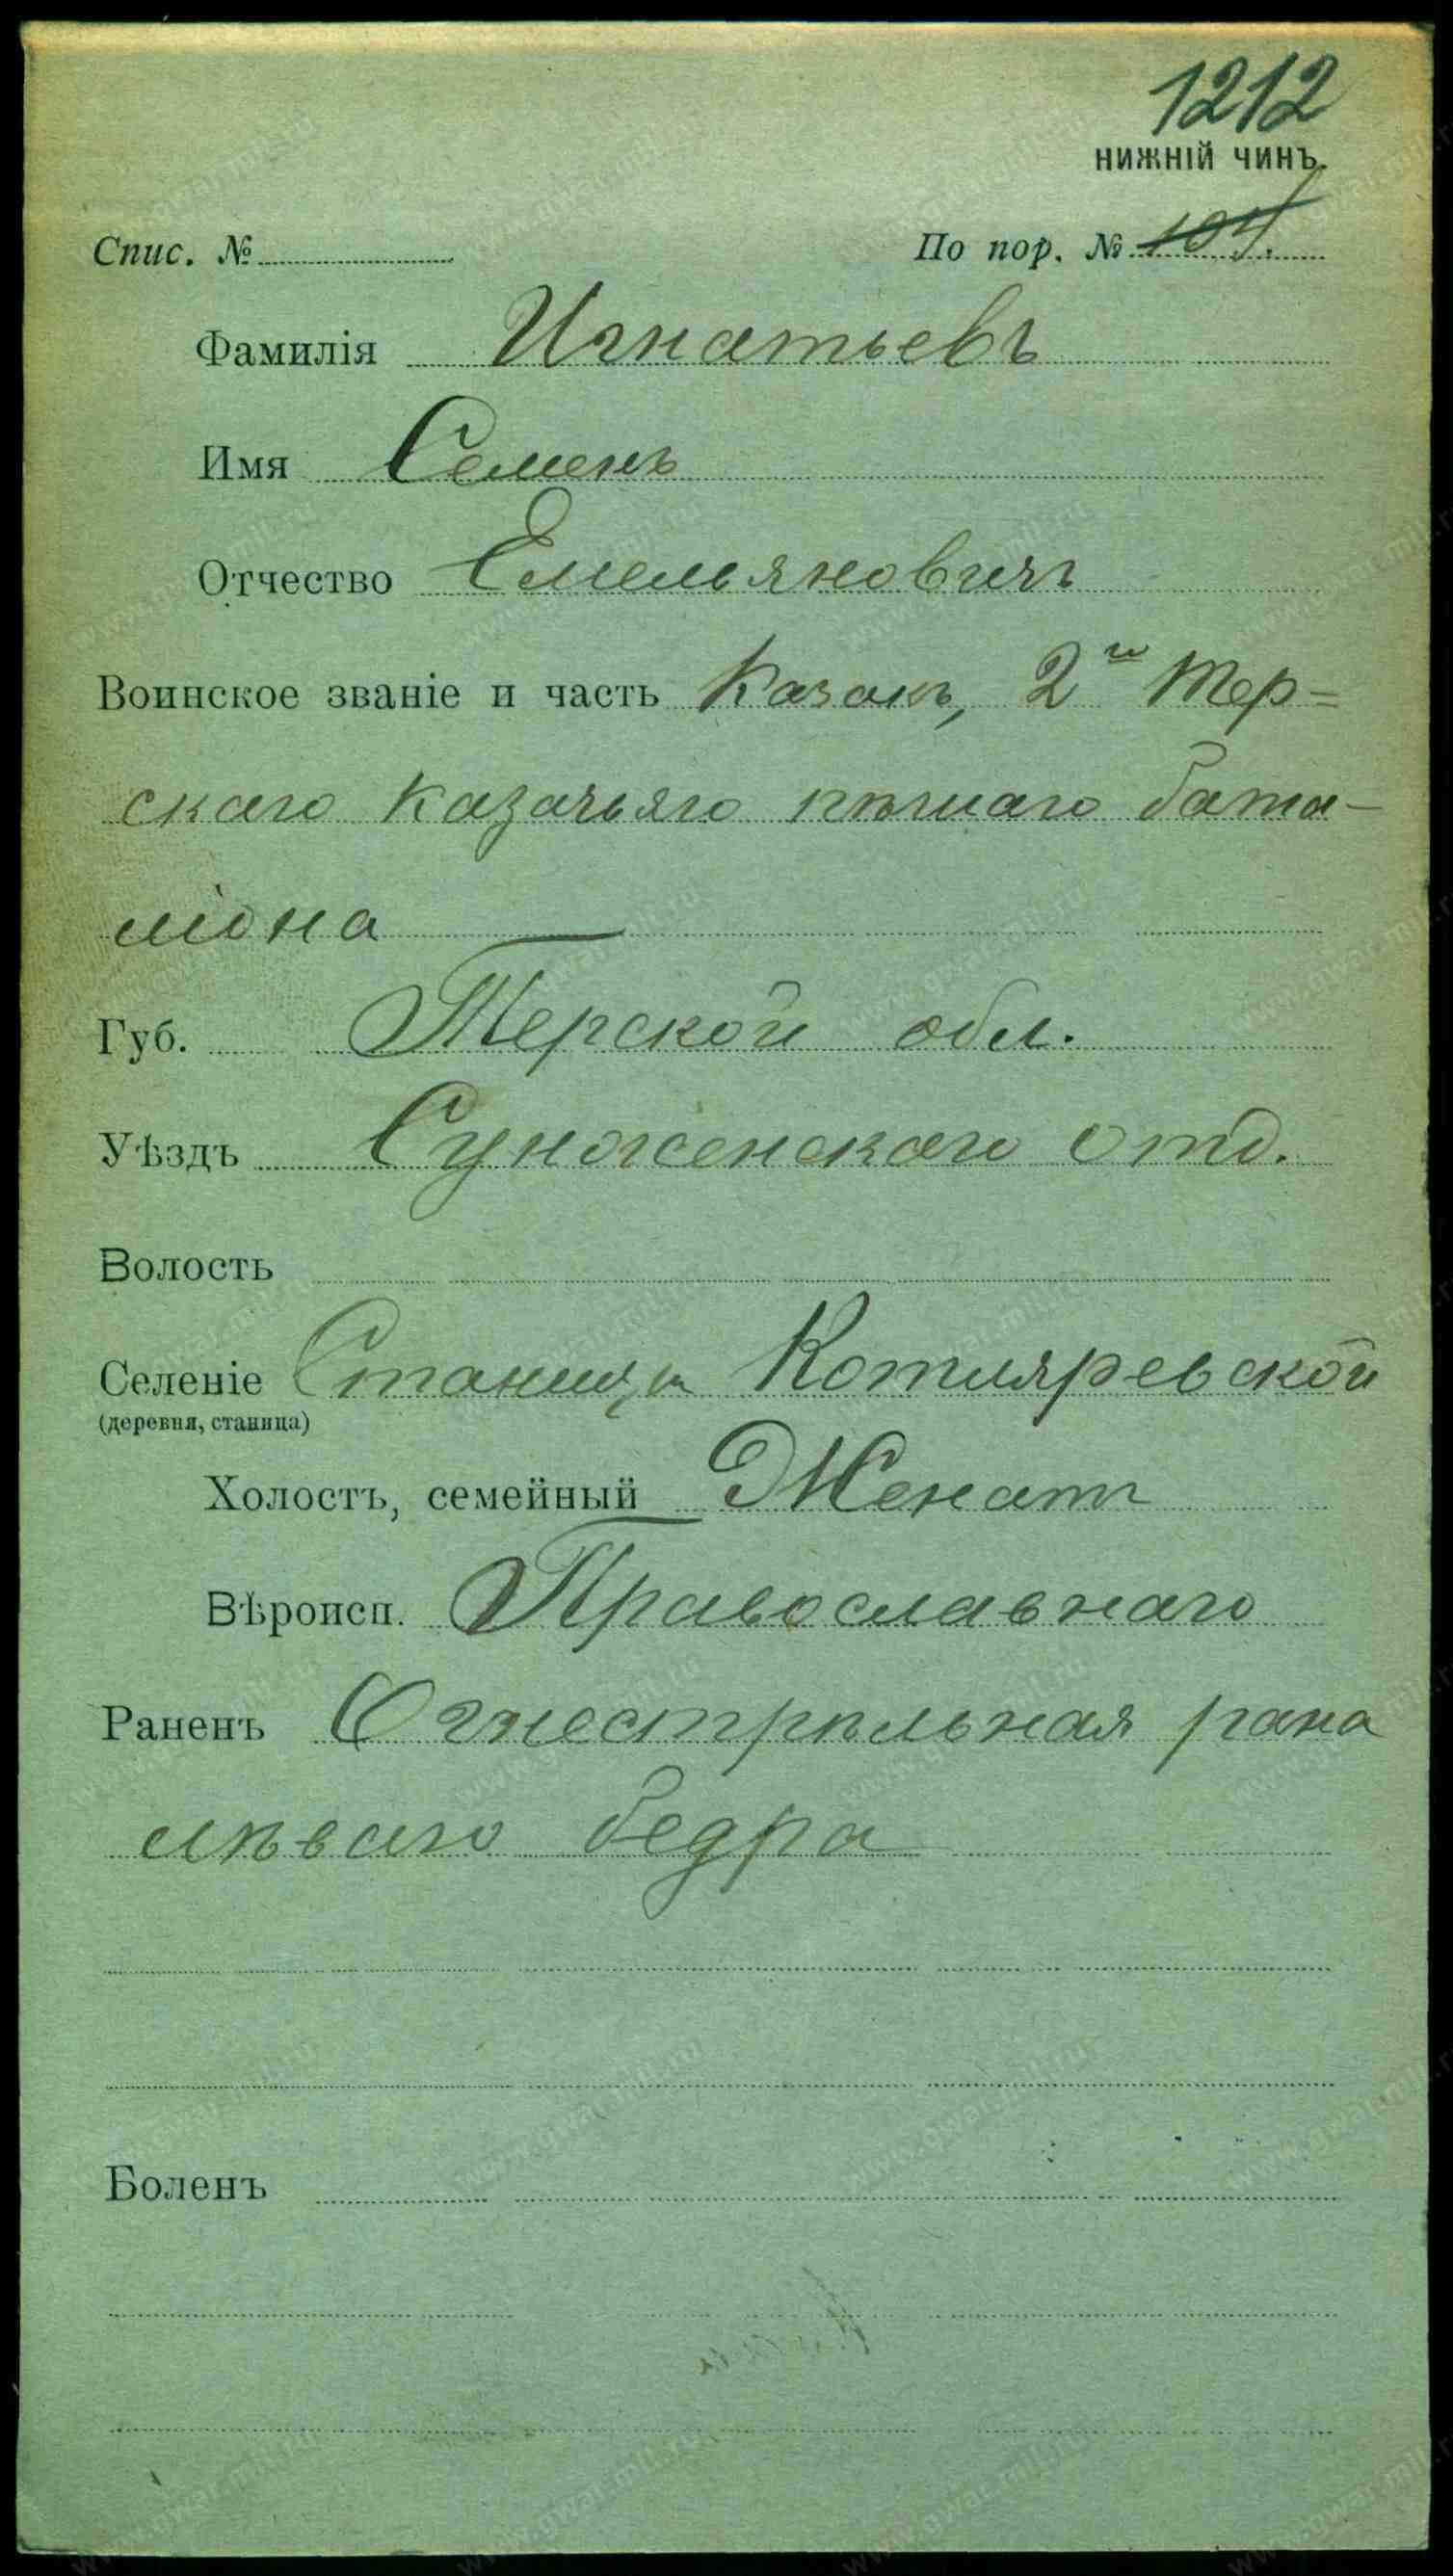 1212
НИЖНІЙ ЧИНЪ.
Спис. № По пор. № 104.
Фамилія Игнатьевъ
Имя Семенъ
Отчество Емельяновичъ
Воинское званіе и часть Казакъ, 2й Тер=
скаго казачьяго пѣшаго бата-
ліона
Губ. Терской обл.
Уѣздъ Сунженскаго отд.
Волость
Селеніе Станицы Котляревской
(деревня, станица)
Холостъ, семейный Женатъ
Вѣроисп. Православнаго
Раненъ Огнестрѣльная рана
лѣваго бедра
Боленъ